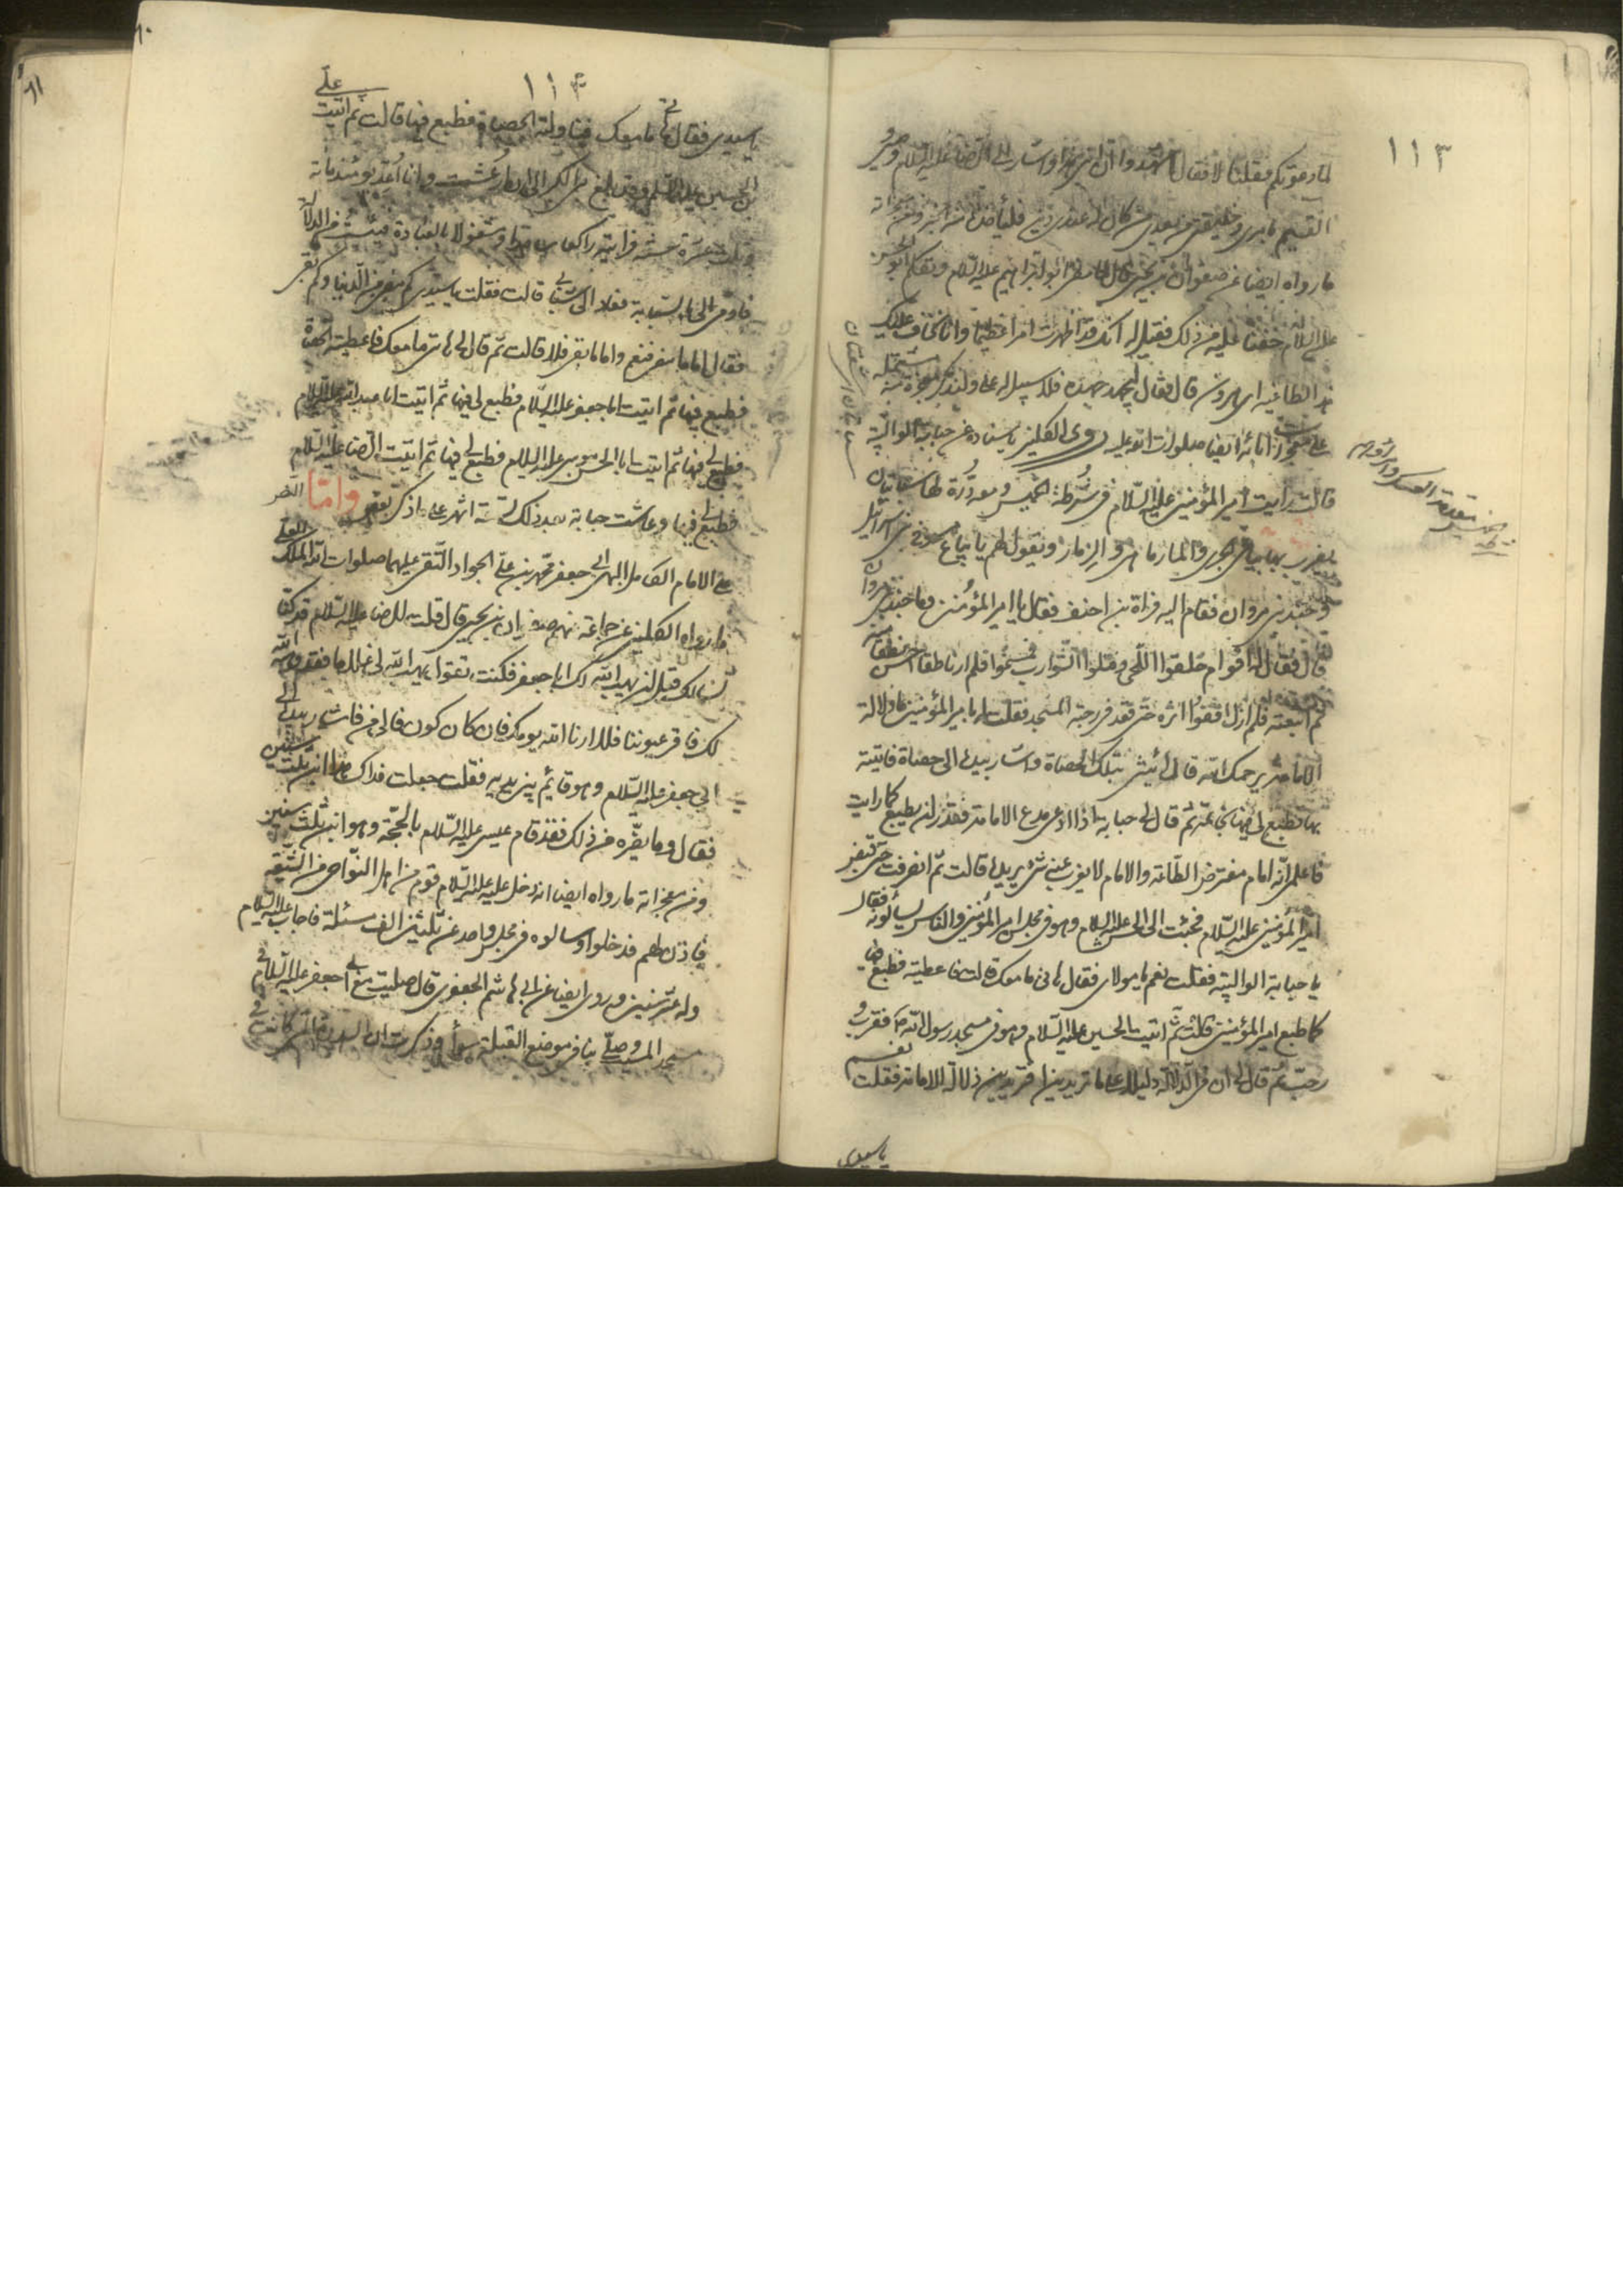 ١١٣
لما دعوتكم فقلنا لا فقال اشهدوا ان ابني هذا واشار الى الرضا عليه السلام وصيي و
القيم بامري وخليفتي من بعدي من كان له عندي دين فليأخذه من ابني ومن معجزاته
ما رواه ايضا عن صفوان بن يحيى قال لما مضى ابو ابراهيم عليه السلام وتكلم ابو الحسن
عليه السلام خفنا عليه من ذلك فقيل له انك قد اظهرت امرا عظيما وانا نخاف عليك
هذا الطاغية اى هرون قال فقال ليجهد جهده فلا سبيل له على ولنذكر معجزة مشتملة
على معجزات آبائه ايضا صلوات الله عليه روى الكليني باسناده عن حبابة الوالبية
قالت رايت امير المؤمنين عليه السلام في شرطة الخميس ومعه درة لها سبابتان
يضرب بها بياعي الجرى والمارماهى والزمار ويقول لهم يا بياعى مسوخ بني اسرائيل
وجند بني مروان فقام اليه فرات بن احنف فقال يا امير المؤمنين وما جند بني مروان
قال فقال له اقوام حلقوا اللحى وفتلوا الشوارب فمسخوا فلم ار ناطقا احسن نطقا منه
ثم اتبعته فلم ازل اقفوا اثره حتى قعد في رحبة المسجد فقلت له يا امير المؤمنين ما دلالة
الامامة يرحمك الله قالت فقال ائتيني بتلك الحصاة واشار بيده الى حصاة فاتيته
بها فطبع لي فيها بخاتمه ثم قال لى يا حبابة اذا ادعى مدع الامامة فقدر ان يطبع كما رايت
فاعلمى انه امام مفترض الطاعة والامام لا يعزب عنه شئ يريده قالت ثم انصرفت حتى قبض
امير المؤمنين عليه السلام فجئت الى الحسن عليه السلام وهو في مجلس امير المؤمنين والناس يسألونه فقال
يا حبابة الوالبية فقلت نعم يا مولاى فقال هاتى ما معك قالت فاعطيته فطبع فيها
كما طبع امير المؤمنين قالت ثم اتيت الحسين عليه السلام وهو في مسجد رسول الله ص فقرب و
رحب ثم قال لى ان في الدلالة دليلا على ما تريدين افتريدين دلالة الامامة فقلت نعم
يا سيدى
الخميس مقدمة العسكر
١١٤
يا سيدى فقال هاتى ما معك فناولته الحصاة فطبع فيها قالت ثم اتيت على
بن الحسين عليه السلام وقد بلغ بي الكبر الى ان ارعشت وانا اعد يومئذ مائة
وثلث عشرة سنة فرايته راكعا وساجدا ومشغولا بالعبادة فيئست من الدلالة
فاومى الى بالسبابة فعاد الى شبابي قالت فقلت يا سيدى كم مضى من الدنيا وكم بقى
فقال اما ما مضى فنعم واما ما بقى فلا قالت ثم قال لى هاتى ما معك فاعطيته الحصاة
فطبع فيها ثم اتيت ابا جعفر عليه السلام فطبع لى فيها ثم اتيت ابا عبد الله عليه السلام
فطبع لى فيها ثم اتيت ابا الحسن موسى عليه السلام فطبع لى فيها ثم اتيت الرضا عليه السلام
فطبع لى فيها وعاشت حبابة بعد ذلك تسعة اشهر على ما ذكر بعض واما النص
على الامام الكامل ابى جعفر محمد بن على الجواد التقى عليهما صلوات الله الملك العلى
ما رواه الكليني عن جماعة منهم صفوان بن يحيى قال قلت للرضا عليه السلام قد كنا
نسألك قبل ان يهب الله لك ابا جعفر فكنت تقول يهب الله لى غلاما فقد وهبه الله
لك فاقر عيوننا فلا ارانا الله يومك فان كان كون فالى من فاشار بيده الى
ابي جعفر عليه السلام وهو قائم بين يديه فقلت جعلت فداك هذا ابن ثلث سنين
فقال وما يضره من ذلك فقد قام عيسى عليه السلام بالحجة وهو ابن ثلث سنين
ومن معجزاته ما رواه ايضا انه دخل عليه عليه السلام قوم من اهل النواحى من الشيعة
فاذن لهم فدخلوا وسالوه في مجلس واحد عن ثلثين الف مسئلة فاجاب عليه السلام
وله عشر سنين وروى ايضا عن ابى هاشم الجعفرى قال صليت مع ابى جعفر عليه السلام في
مسجد المسيب وصلى بنا في موضع القبلة سواء وذكرت ان السدرة التى كانت في